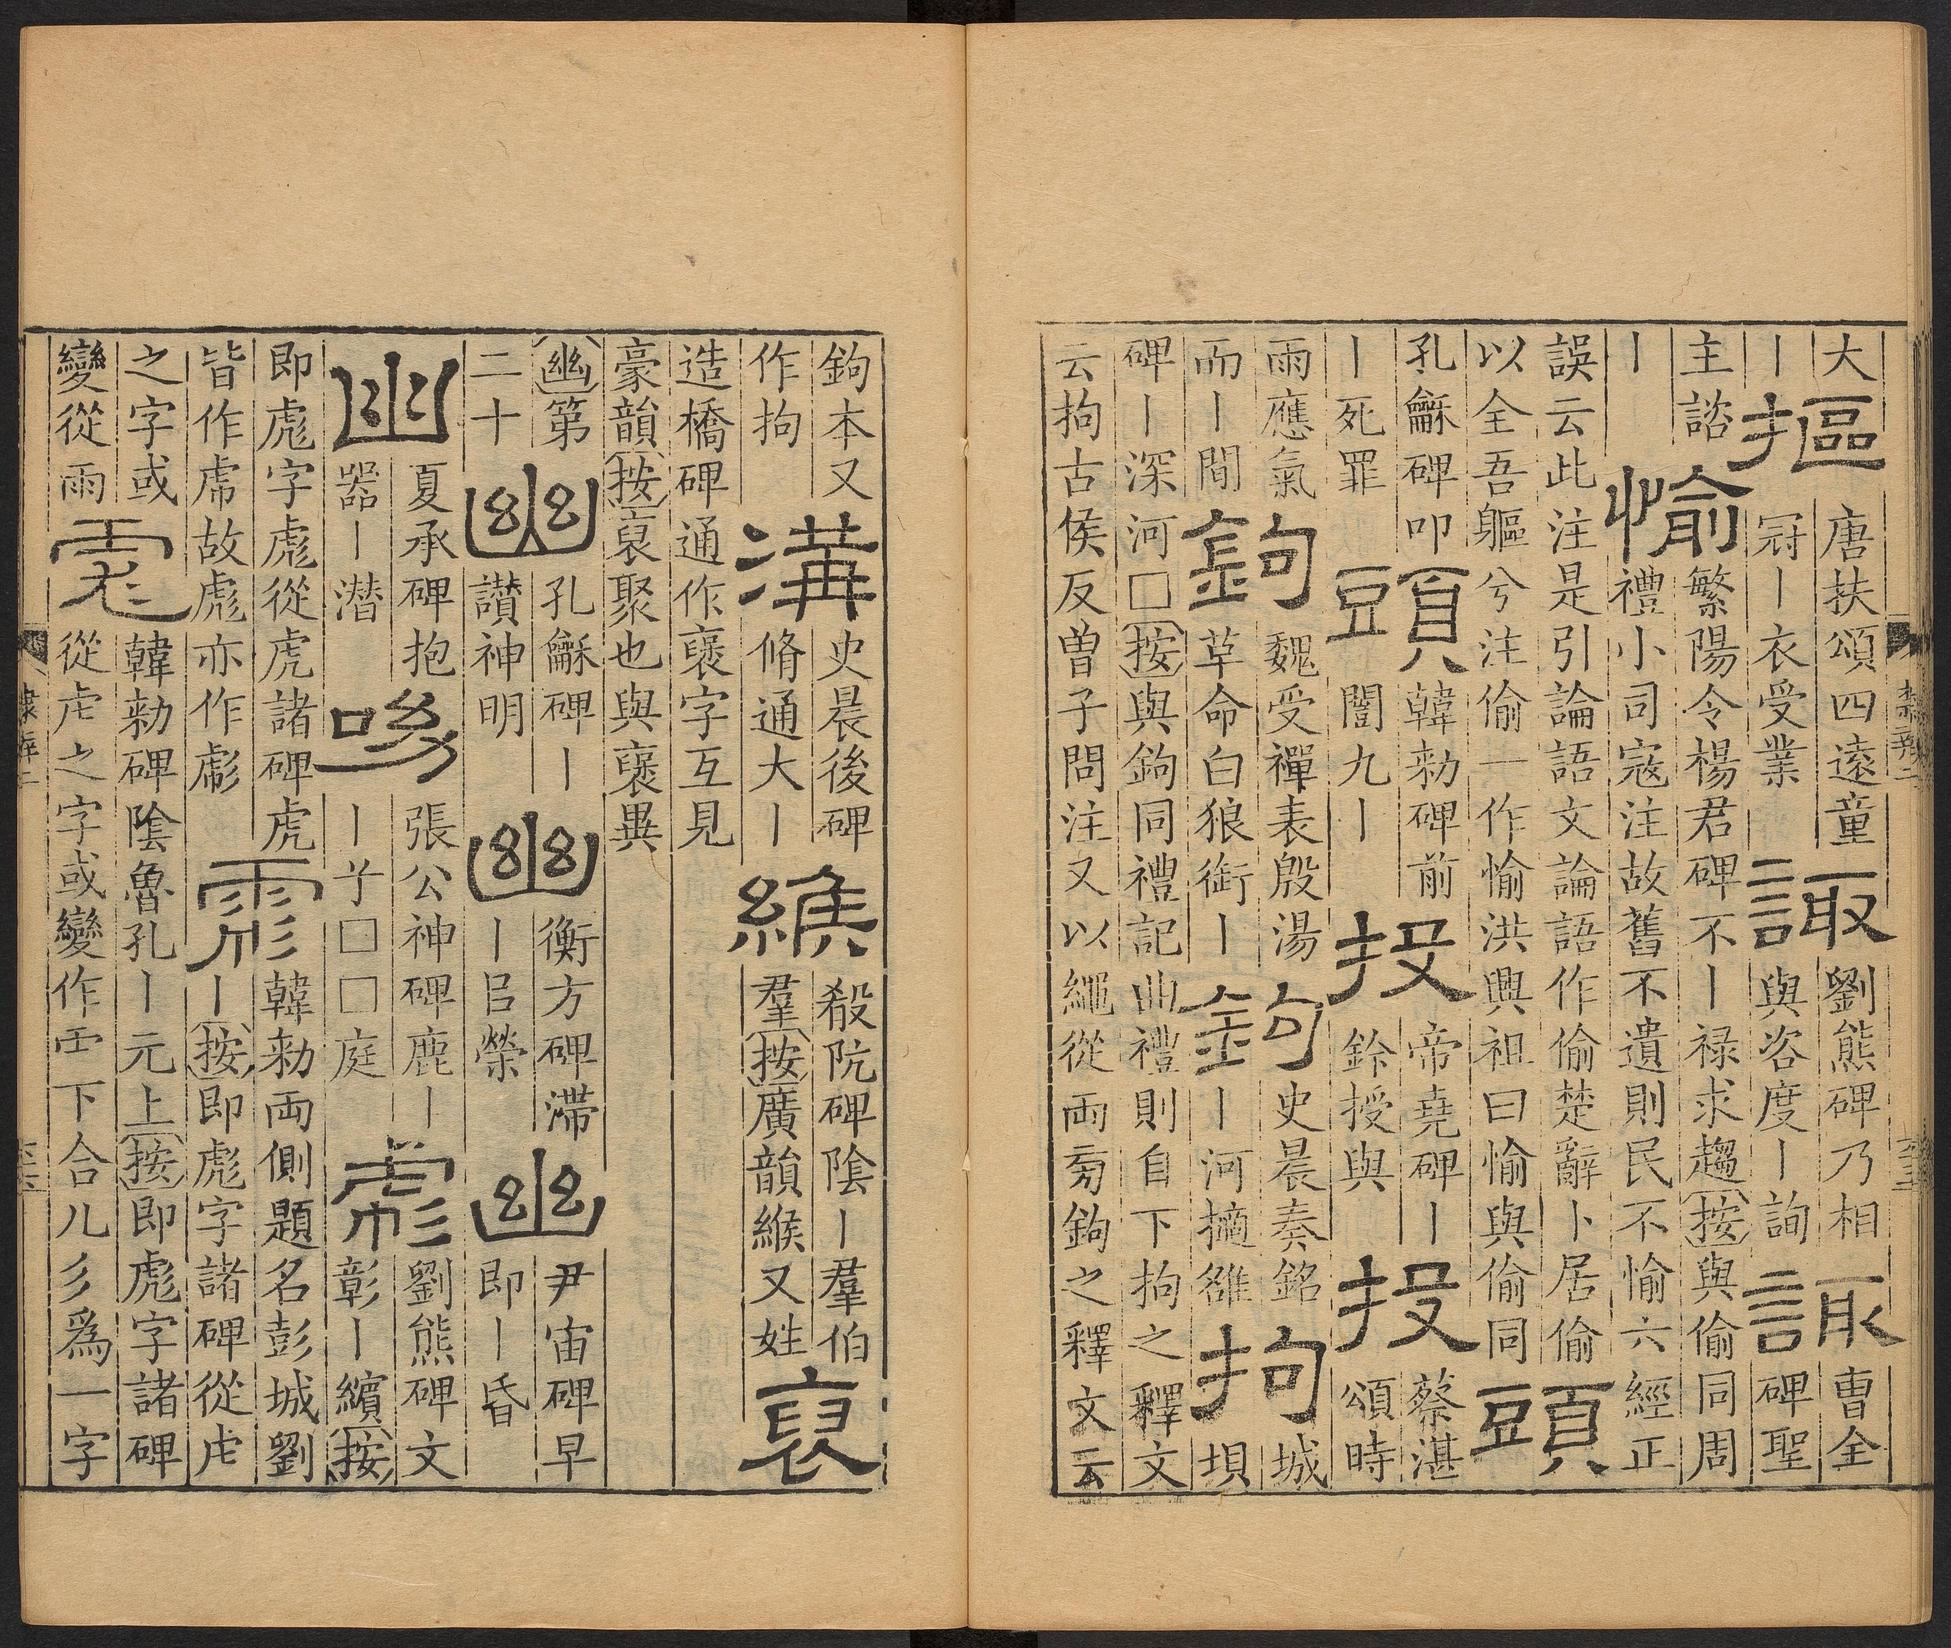 大
丨
摳
唐扶頌四遠童
冠丨衣受業
諏
劉熊碑乃相
與咨度丨詢
諏
曹全
碑聖
主諮
丨
愉
繁陽令楊君碑不丨祿求趨按與偷同周
禮小司寇注故舊不遺則民不愉六經正
誤云此注是引論語文論語作偷楚辭卜居偷
以全吾軀兮注偷一作愉洪興祖曰愉與偷同
頭
孔龢碑叩
丨死罪
頭
韓勑碑前
闇九丨
投
帝堯碑丨
鈐授與
投
蔡湛
頌時
雨應氣
而丨間
鉤
魏受禪表殷湯
草命白狼銜丨
鉤
史晨奏銘
丨河擿雒
拘
城
垻
碑丨深河□按與鉤同禮記曲禮則自下拘之釋文
云拘古侯反曾子問注又以繩從両旁鉤之釋文云
鉤本又
作拘
溝
史晨後碑
脩通大丨
緱
殽阬碑陰丨羣伯
羣按廣韻緱又姓
裒
造橋碑通作褒字互見
豪韻按裒聚也與褒異
幽第
二十
幽
孔龢碑丨
讃神明
幽
衡方碑滯
丨㠯榮
幽
尹宙碑早
即丨昏
幽
夏承碑抱
器丨潛
呦
張公神碑鹿丨
丨子□□庭
彪
劉熊碑文
彰丨繽按
即彪字彪從虎諸碑虎
皆作虎故彪亦作彪
彪
韓勑両側題名彭城劉
丨按即彪字諸碑從虍
之字或
變從雨
彪
韓勑碑陰魯孔丨元上按即彪字諸碑
從虍之字或變作覀下合儿彡爲一字